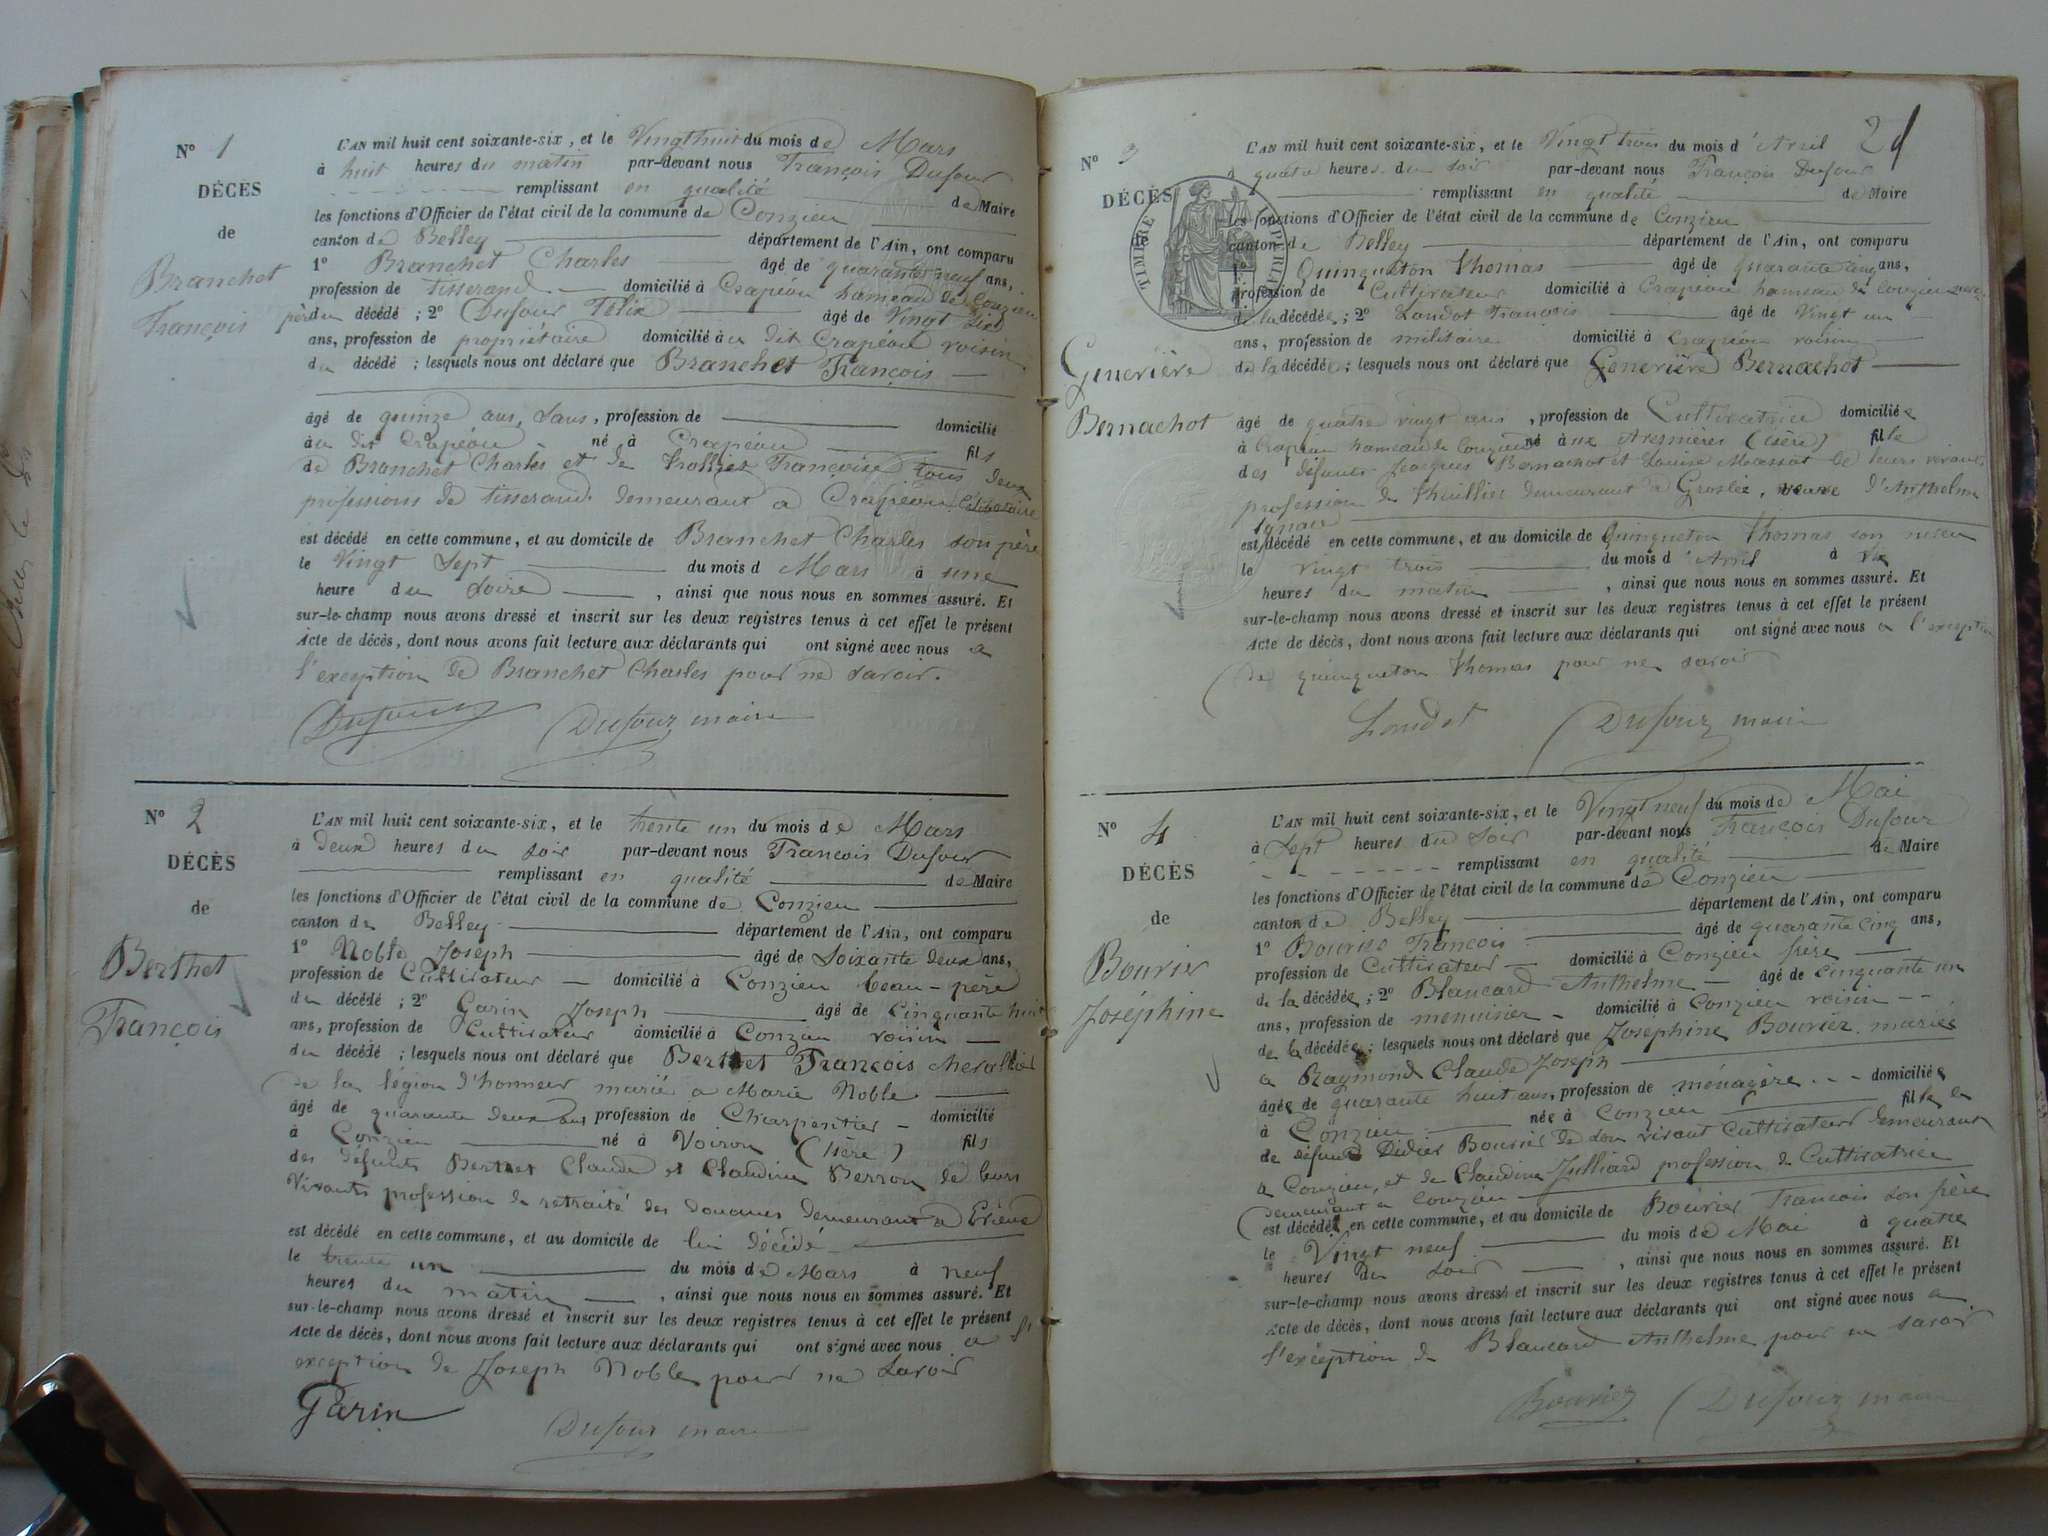 N° 1
DÉCÈS
de
Branchet
François
L'AN mil huit cent soixante-six, et le Vingt huit du mois de Mars
à huit heures du matin par-devant nous François Dufour
remplissant en qualité de Maire
les fonctions d'Officier de l'état civil de la commune de Conzieu
canton de Belley département de l'Ain, ont comparu
1° Branchet Charles âgé de quarante neuf ans,
profession de tisserand domicilié à Crapéou hameau de Conzieu
père du décédé ; 2° Dufour Félix âgé de Vingt
ans, profession de propriétaire domicilié à u dit Crapéou voisin
du décédé ; lesquels nous ont déclaré que Branchet François
âgé de quinze ans, sans, profession de domicilié
à u dit Crapéou né à Crapéou fils
de Branchet Charles et de Trolliet Françoise tous deux
professions de tisserand demeurant a Crapéou Célibataire
est décédé en cette commune, et au domicile de Branchet Charles son père
le Vingt Sept du mois d Mars à une
heure du Soire , ainsi que nous nous en sommes assuré. Et
sur-le-champ nous avons dressé et inscrit sur les deux registres tenus à cet effet le présent
Acte de décès, dont nous avons fait lecture aux déclarants qui ont signé avec nous a
l'exception de Branchet Charles pour ne savoir.
Dufour Dufour maire
N° 2
DÉCÈS
de
Berthet
François
L'AN mil huit cent soixante-six, et le trente un du mois de Mars
à deux heures du soir par-devant nous François Dufour
remplissant en qualité de Maire
les fonctions d'Officier de l'état civil de la commune de Conzieu
canton de Belley département de l'Ain, ont comparu
1° Noble Joseph âgé de Soixante deux ans,
profession de Cultivateur domicilié à Conzieu beau-père
du décédé ; 2° Garin Joseph âgé de Cinquante huit
ans, profession de Cultivateur domicilié à Conzieu voisin
du décédé ; lesquels nous ont déclaré que Berthet François chevallier
de la légion d'honneur marié a Marie Noble
âgé de quarante deux ans profession de Charpentier domicilié
à Conzieu né à Voiron (Isère) fils
des défunts Berthet Claude et Claudine Berron de leurs
Vivants profession de retraité des douanes demeurant à
est décédé en cette commune, et au domicile de lui décédé
le trente un du mois de Mars à neuf
heures du matin , ainsi que nous nous en sommes assuré. Et
sur-le-champ nous avons dressé et inscrit sur les deux registres tenus à cet effet le présent
Acte de décès, dont nous avons fait lecture aux déclarants qui ont signé avec nous a l'
exception de Joseph Noble pour ne savoir
Garin
Dufour maire
2
N° 3
DÉCÈS
TIMBRE IMPERIAL
Geneviève
Bernachot
L'AN mil huit cent soixante-six, et le Vingt trois du mois d'Avril
à quatre heures du soir par-devant nous François Dufour
remplissant en qualité de Maire
les fonctions d'Officier de l'état civil de la commune de Conzieu
canton de Belley département de l'Ain, ont comparu
1° Quinqueton Thomas âgé de quarante cinq ans,
profession de Cultivateur domicilié à Crapéou hameau de Conzieu neveu
de la décédée ; 2° Loudot François âgé de Vingt un
ans, profession de militaire domicilié à Crapéou voisin
de la décédée ; lesquels nous ont déclaré que Geneviève Bernachot
âgé de quatre vingt ans , profession de Cultivatrice domiciliée
à Crapéou hameau de Conzieu né à ux Avenières (Isère) fille
des défunts Jacques Bernachot et Louise de leurs vivants
profession de demeurant a Groslée, veuve d'Anthelme
Ignace
est décédé en cette commune, et au domicile de Quinqueton Thomas son neveu
le vingt trois du mois d'Avril à
heures du matin , ainsi que nous nous en sommes assuré. Et
sur-le-champ nous avons dressé et inscrit sur les deux registres tenus à cet effet le présent
Acte de décès, dont nous avons fait lecture aux déclarants qui ont signé avec nous a l'exception
de quinqueton Thomas pour ne savoir
Loudot Dufour maire
N° 4
DÉCÈS
de
Bouvier
Joséphine
L'AN mil huit cent soixante-six, et le Vingt neuf du mois de Mai
à Sept heures du Soir par-devant nous François Dufour
remplissant en qualité de Maire
les fonctions d'Officier de l'état civil de la commune de Conzieu
canton de Belley département de l'Ain, ont comparu
1° Bouvier François âgé de quarante cinq ans,
profession de Cultivateur domicilié à Conzieu frère
de la décédée ; 2° Blancard Anthelme âgé de cinquante un
ans, profession de menuisier domicilié à Conzieu voisin
de la décédée ; lesquels nous ont déclaré que Joséphine Bouvier mariée
a Raymond Claude Joseph
âgée de quarante huit ans, profession de ménagère domiciliée
à Conzieu née à Conzieu fille
de défunt Didier Bouvier de son vivant Cultivateur demeurant
a Conzieu, et de Claudine Julliard profession de Cultivatrice
demeurant a Conzieu
est décédée en cette commune, et au domicile de Bouvier François son frère
le Vingt neuf du mois de Mai à quatre
heures du soir , ainsi que nous nous en sommes assuré. Et
sur-le-champ nous avons dressé et inscrit sur les deux registres tenus à cet effet le présent
Acte de décès, dont nous avons fait lecture aux déclarants qui ont signé avec nous a
l'exception de Blancard Anthelme pour ne savoir
Bouvier Dufour maire